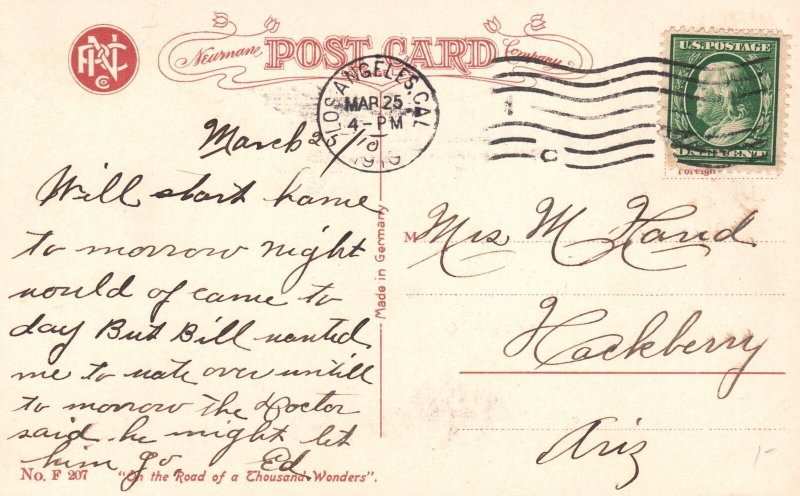 Newman
POST CARD
Company
PNC
Co
LOS ANGELES, CAL
MAR 25
4-PM
1910
U.S. POSTAGE
ONE CENT
Foreign
March 25/10
Will start home
to morrow night
would of came to
day But Bill wanted
me to wate over untill
to morrow the Doctor
said he might let
him go Ed.
Made in Germany
M
Mrs M Hand
Hackberry
Ariz
1-
No. F 207 "On the Road of a Thousand Wonders".